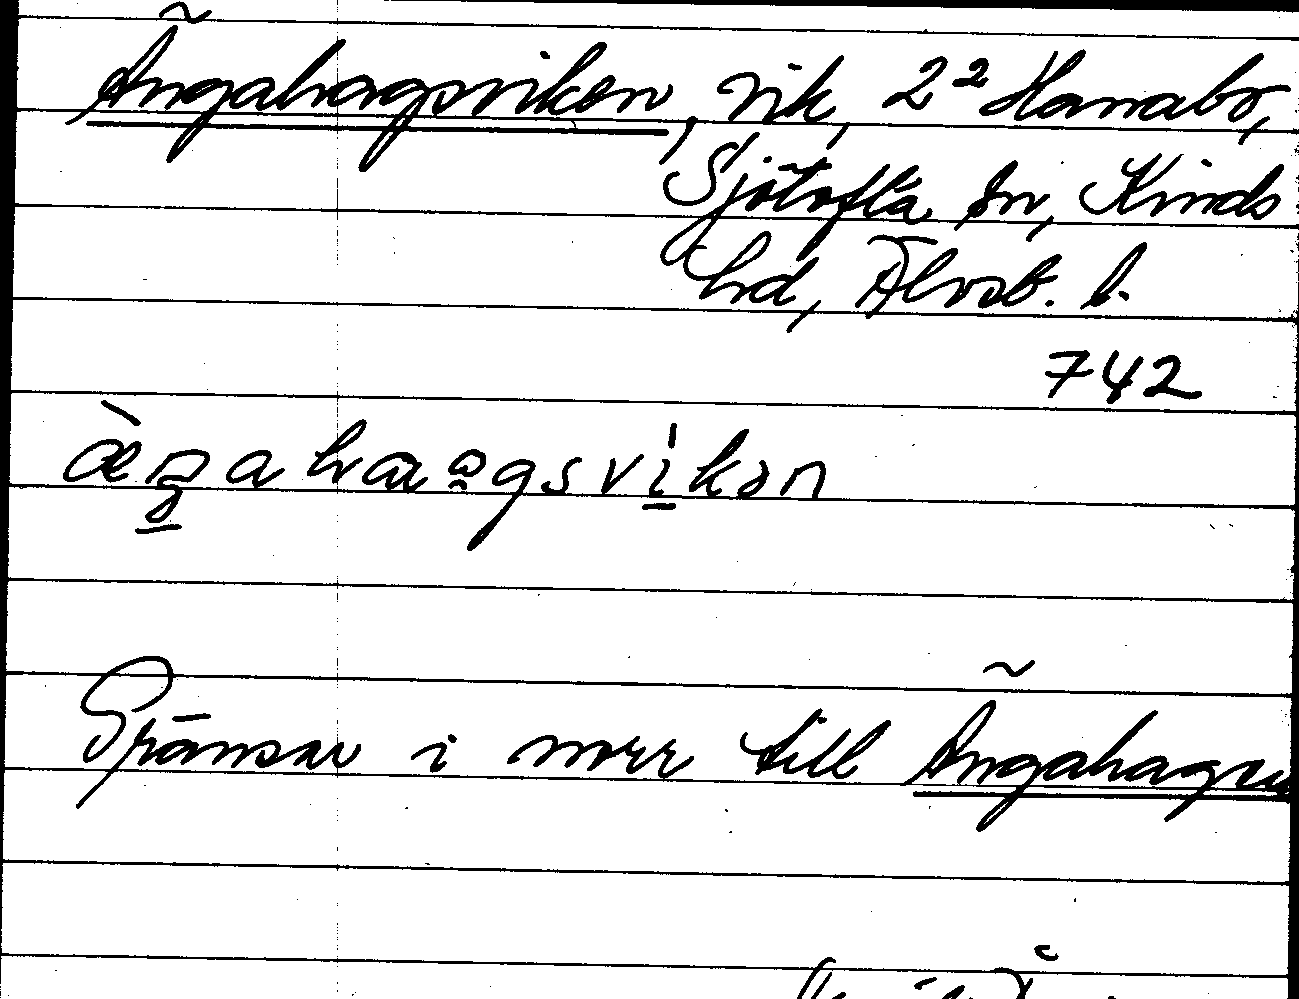 Ängahagsviken, vik, 2² Hanabo,
Sjötofta sn, Kinds
hd, Älvsb. l.
742
æ̀ŋahaagsvikən
Gränsar i norr till Ängahagen